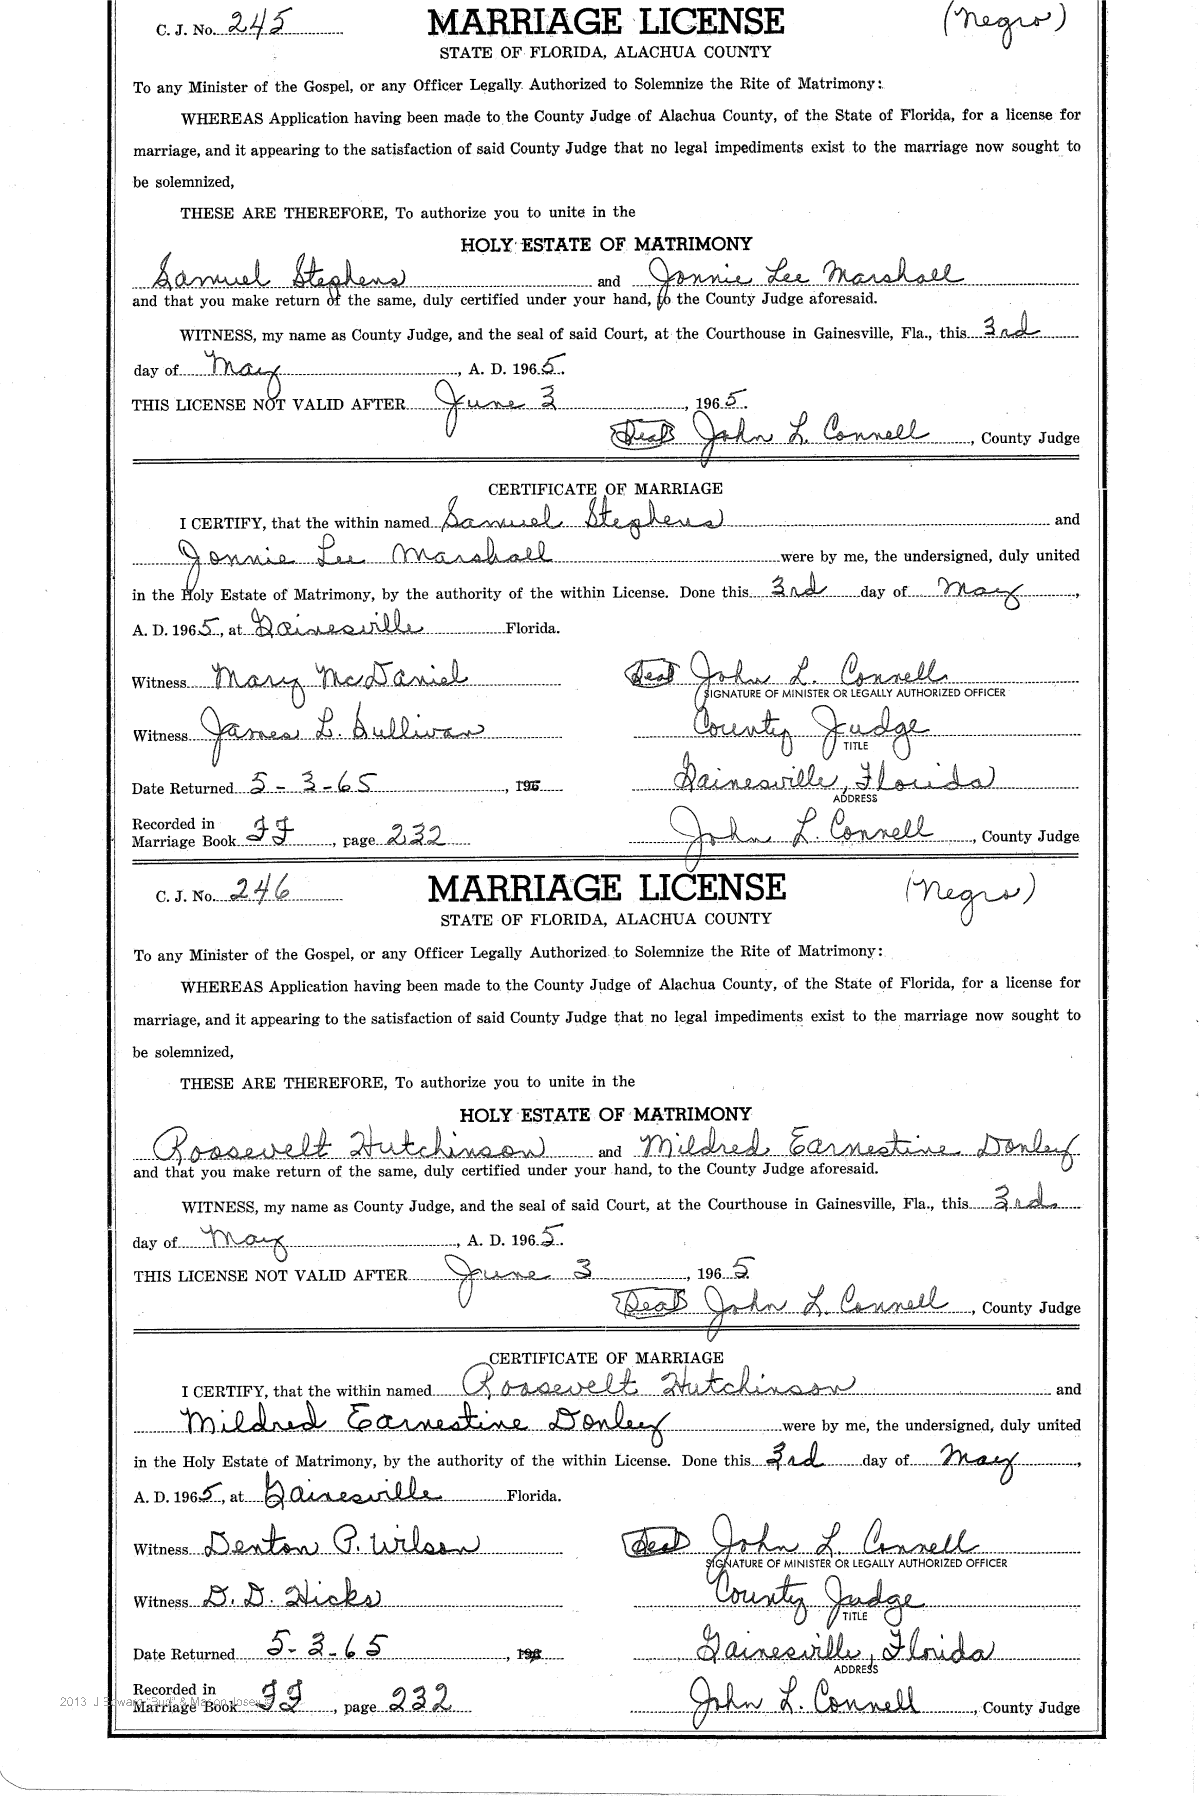 C. J. No. 245 MARRIAGE LICENSE (Negro)
STATE OF FLORIDA, ALACHUA COUNTY
To any Minister of the Gospel, or any Officer Legally Authorized to Solemnize the Rite of Matrimony:
WHEREAS Application having been made to the County Judge of Alachua County, of the State of Florida, for a license for
marriage, and it appearing to the satisfaction of said County Judge that no legal impediments exist to the marriage now sought to
be solemnized,
THESE ARE THEREFORE, To authorize you to unite in the
HOLY ESTATE OF MATRIMONY
Samuel Stephens and Jonnie Lee Marshall
and that you make return of the same, duly certified under your hand, to the County Judge aforesaid.
WITNESS, my name as County Judge, and the seal of said Court, at the Courthouse in Gainesville, Fla., this 3rd
day of May, A. D. 1965.
THIS LICENSE NOT VALID AFTER June 3, 1965.
Seal John L. Connell, County Judge
CERTIFICATE OF MARRIAGE
I CERTIFY, that the within named Samuel Stephens and
Jonnie Lee Marshall were by me, the undersigned, duly united
in the Holy Estate of Matrimony, by the authority of the within License. Done this 3rd day of May,
A. D. 1965, at Gainesville Florida.
Witness Mary McDaniel Seal John L. Connell
SIGNATURE OF MINISTER OR LEGALLY AUTHORIZED OFFICER
Witness James L. Sullivan County Judge
TITLE
Date Returned 5-3-65, 196 Gainesville, Florida
ADDRESS
Recorded in
Marriage Book JJ, page 232 John L. Connell, County Judge
C. J. No. 246 MARRIAGE LICENSE (Negro)
STATE OF FLORIDA, ALACHUA COUNTY
To any Minister of the Gospel, or any Officer Legally Authorized to Solemnize the Rite of Matrimony:
WHEREAS Application having been made to the County Judge of Alachua County, of the State of Florida, for a license for
marriage, and it appearing to the satisfaction of said County Judge that no legal impediments exist to the marriage now sought to
be solemnized,
THESE ARE THEREFORE, To authorize you to unite in the
HOLY ESTATE OF MATRIMONY
Roosevelt Hutchinson and Mildred Earnestine Donley
and that you make return of the same, duly certified under your hand, to the County Judge aforesaid.
WITNESS, my name as County Judge, and the seal of said Court, at the Courthouse in Gainesville, Fla., this 3rd
day of May, A. D. 1965.
THIS LICENSE NOT VALID AFTER June 3, 1965
Seal John L. Connell, County Judge
CERTIFICATE OF MARRIAGE
I CERTIFY, that the within named Roosevelt Hutchinson and
Mildred Earnestine Donley were by me, the undersigned, duly united
in the Holy Estate of Matrimony, by the authority of the within License. Done this 3rd day of May,
A. D. 1965, at Gainesville Florida.
Witness Denton P. Wilson Seal John L. Connell
SIGNATURE OF MINISTER OR LEGALLY AUTHORIZED OFFICER
Witness D. D. Hicks County Judge
TITLE
Date Returned 5-3-65, Gainesville, Florida
ADDRESS
Recorded in
2013 J Edward "Bud" &
Marriage Book JJ, page 232 John L. Connell, County Judge